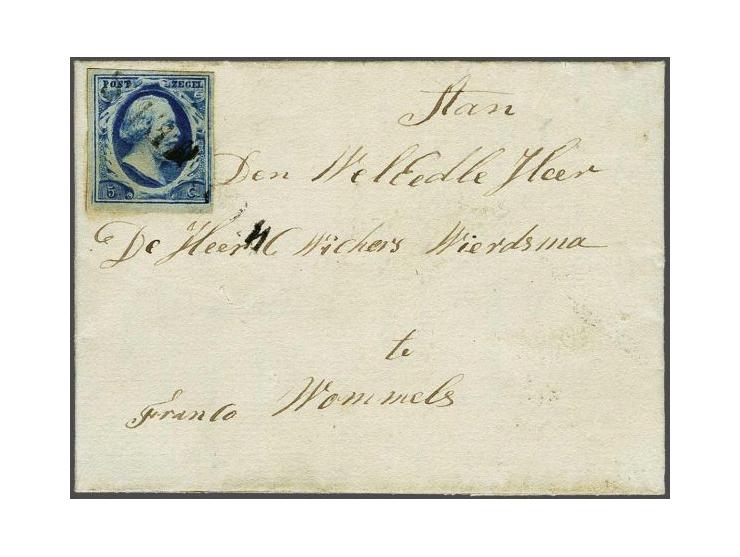 POST ZEGEL
5 C.
Aan
Den WelEedle Heer
De Heer M Wichers Wierdsma
te
Franco Wommels